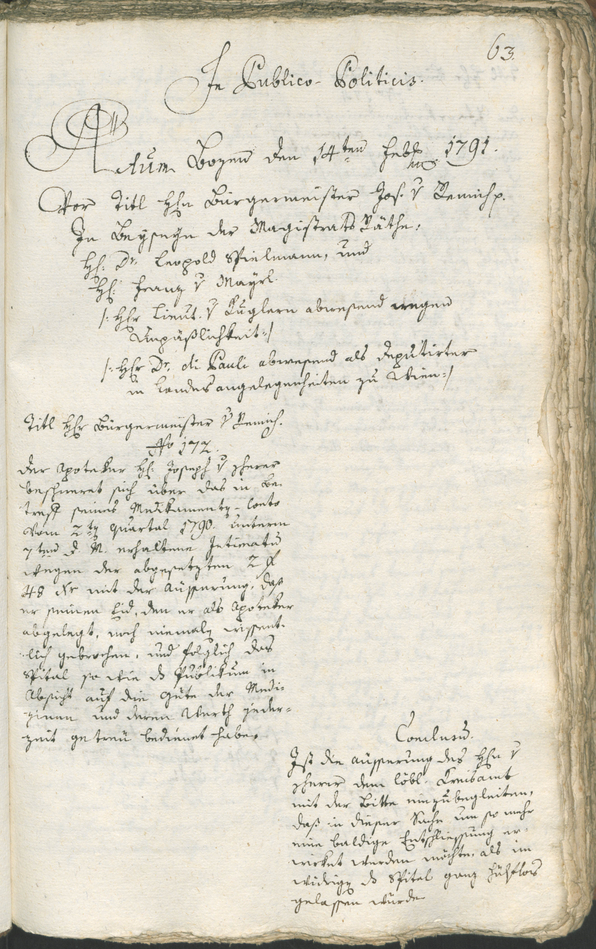 63.
In Publico-Politicis.
Actum Bozen den 14ten Febr 1791.
Vor Titl Hrn Bürgermeister Jos: v Remich p.
In Beyseyn der Magistrats Räthe,
H: Dr. Leopold Spielmann, und
H: Franz v Mayrl
/: Hhr Lieut. v Kuglern abwesend wegen
Unpäßlichkeit:/
/: Hhr Dr. di Pauli abwesend als deputirter
in Landesangelegenheiten zu Wien:/
Titl Hhr Bürgermeister v Remich.
No 172.
Der Apoteker H: Joseph v
beschweret sich über das in be-
treff seines Medikamenten-Conto
vom 2ten Quartal 1790 unterm
7ten d. M. erhaltene Intimatum
wegen der abgesetzten 2 f
48 Kr mit der äusserung, daß
er seinen Eid, den er als Apoteker
abgelegt, noch niemals wissent-
lich gebrochen, und folglich das
Spital so wie d Publikum in
Absicht auf die Güte der Medi-
zinen und deren Werth jeder-
zeit getreu bedienet habe.
Conclusum.
Ist die äusserung des Hrn v
dem löbl. Kreisamt
mit der Bitte einzubegleiten,
daß in dieser Sache um so mehr
eine baldige Entschliessung er-
wirket werden möchte, als im
widrigen d Spital ganz hülflos
gelassen würde